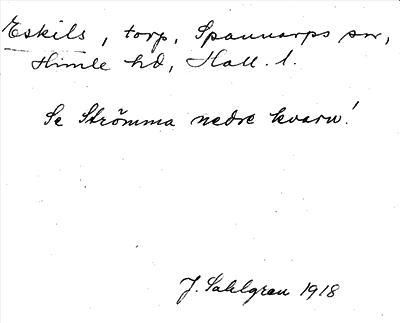 Eskils, torp, Spannarps sn,
Himle hd, Hall. l.
Se Strömma nedre kvarn!
J. Sahlgren 1918